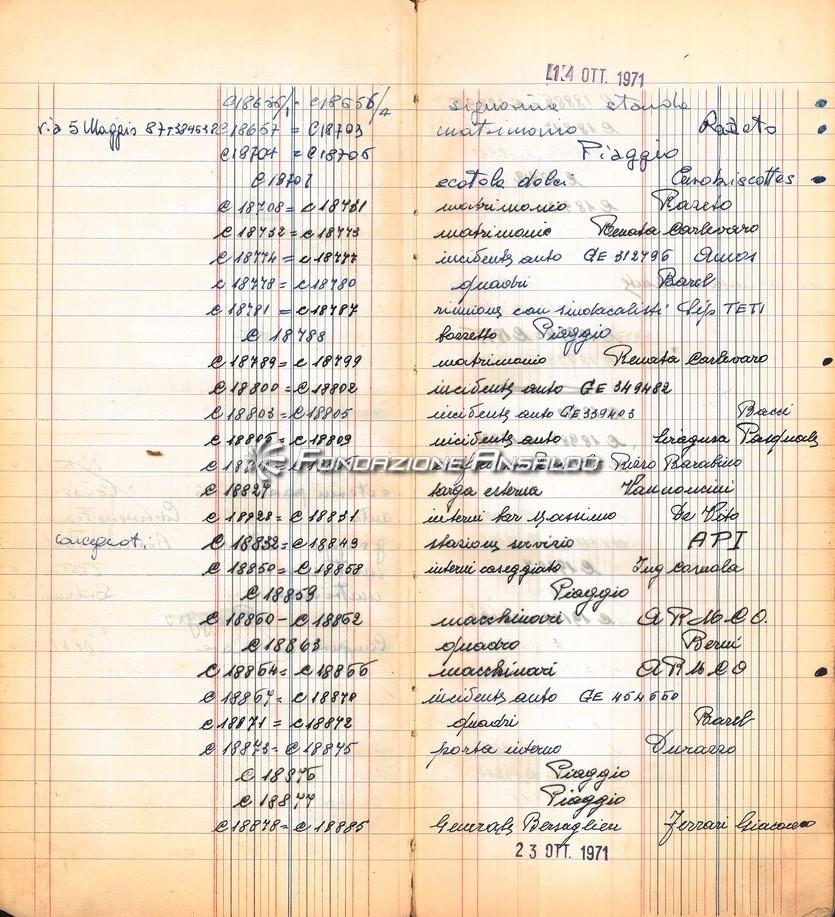 14 OTT. 1971
C18656/1 = C18656/4 signorine standa
via 5 Maggio 87 T384638 C18657 = C18703 matrimonio Razeto
C18704 = C18706 Piaggio
C18707 scatola dolci Eurobiscottes
C18708 = C18731 matrimonio Razeto
C18732 = C18773 matrimonio Renata Carlevaro
C18774 = C18777 incidente auto GE 312796 Amos
C18778 = C18780 quadri Barel
C18781 = C18787 riunione con sindacalisti Sip TETI
C18788 bozzetto Piaggio
C18789 = C18799 matrimonio Renata Carlevaro
C18800 = C18802 incidente auto GE 349482
C18803 = C18805 incidente auto GE 339403 Bacci
C18806 = C18809 incidente auto Siragusa Pasquale
FONDAZIONE ANSALDO
Piero Barabino
C18827 targa esterna Vannoncini
C18828 = C18831 interni bar Massimo De Vito
C18832 = C18849 stazione servizio API
C18850 = C18858 interni caseggiato Ing Carnola
C18859 Piaggio
C18860 - C18862 macchinari ARMCO.
C18863 quadro Berni
C18864 = C18866 macchinari ARMCO
C18867 = C18870 incidente auto GE 454660
C18871 = C18872 quadri Barel
C18873 = C18875 porta interno Durazzo
C18876 Piaggio
C18877 Piaggio
C18878 = C18885 Generale Bersaglieri Ferrari Giacomo
23 OTT. 1971